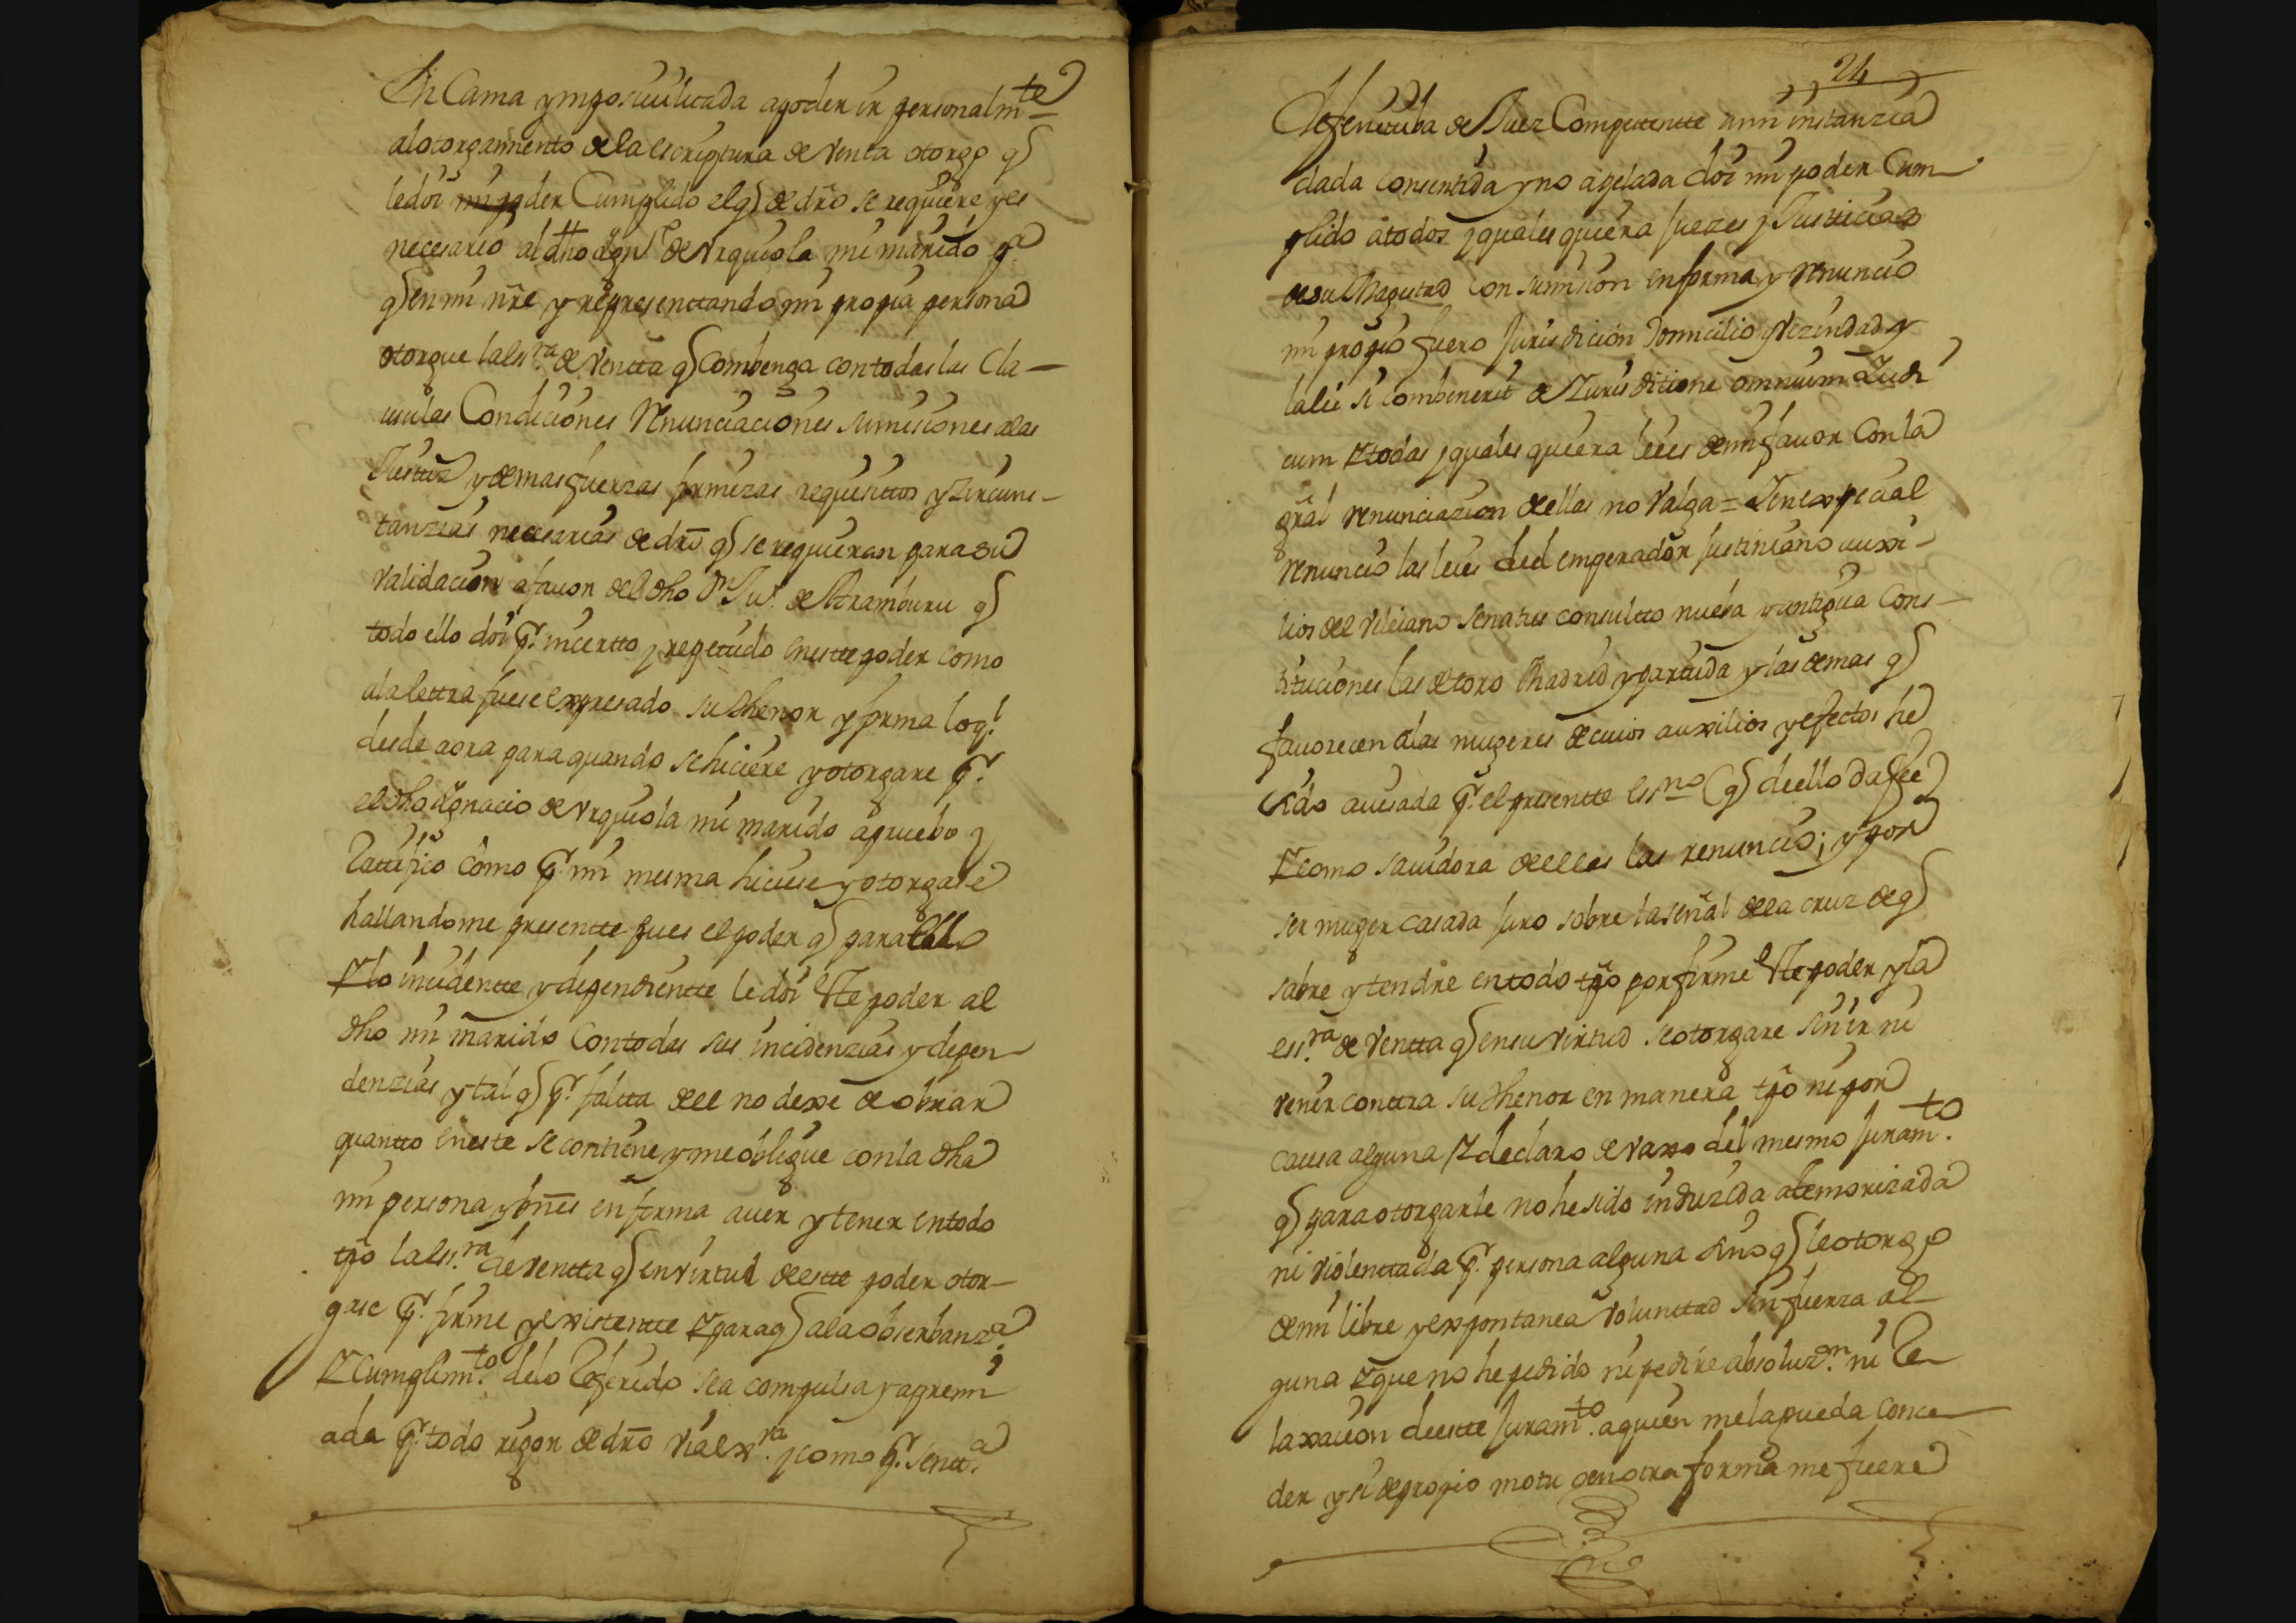 En Cama y mposiuilitada a poder ir personalmte
al otorgamiento de la escriptura de Venta otorgo q
le doi mi poder Cumplido el q de dro se requiere y es
necesario al dho dn Ign.º de Vrquiola mi marido pa
q en mi nre y representtando mi propia persona
otorgue la essra de Ventta q Combenga con todas las Cla-
usulas Condiciones Renunciaciones sumisiones a las
Justiz y demas fuerzas firmezas requisittos y zircuns-
tanzias necesarias de dro q se requieran para su
Validacion a fauor del dho Dn Ju.º de Aramburu q
todo ello doi pr. incertto y repetido en estte poder como
a la lettra fuese expresado su thenor y forma lo ql
desde aora para quando se hiciere y otorgare pr.
el dho Ignacio de Vrquiola mi marido apruebo y
Rattifico como pr. mi mesma hiciese y otorgase
hallandome presentte pues el poder q para ello
Y lo incidentte y dependientte le doi este poder al
dho mi marido Con todas sus incidenzias y depen-
denzias y tal q pr. faltta de el no dexe de obrar
quantto en este se contiene y me obligue con la dha
mi persona y bnes en forma auer y tener en todo
tpo la essra de Ventta q en virtud de estte poder otor-
gase pr. firme y existentte Y para q a la obserbanza
Y Cumplimto. de lo Referido sea compulsa y apremi
ada pr. todo rigor de dro Via exva. y como pr. Sentta.
24
Definitiba de Juez Competentte a mi instanzia
dada consentida y no apelada doi mi poder Cum-
plido a todos y quales quiera Juezes y Justicias
de su Magestad Con sumision en forma y Renuncio
mi propio fuero Jurisdicion Domicilio y Vezindad y
la lei si combenerit de Jurisditione omnium Judi
cum Y todas y quales quiera leies de mi fauor Con la
gral renunciazion de ellas no Valga = Y en expecial
renuncio las leies del emperador Justiniano auxi-
lios del Veleiano senatus consultto nueba y antigua Cons-
tituciones las de toro Madrid y partida y las demas q
fauorecen a las mugeres de cuios auxilios y efectos he
sido auisada pr. el presentte essno (q de ello da fee)
Y como sauidora de ellas las renuncio; y por
ser muger casada Juro sobre la señal de la cruz de q
abre y tendre en todo tpo por firme este poder y la
essra de Ventta q en su virtud se otorgare sin ir ni
venir conttra su thenor en manera tpo ni por
causa alguna Y declaro devaxo del mesmo Juramto.
q para otorgarle no he sido induzida atemorizada
ni violenttada pr. persona alguna sino q le otorgo
de mi libre y expontanea Volunttad sin fuerza al-
guna Y que no he pedido ni pedire absoluzon. ni Re-
laxacion de estte Juramto. a quien me la pueda conce-
der y si de propio motu o en otra forma me fuere